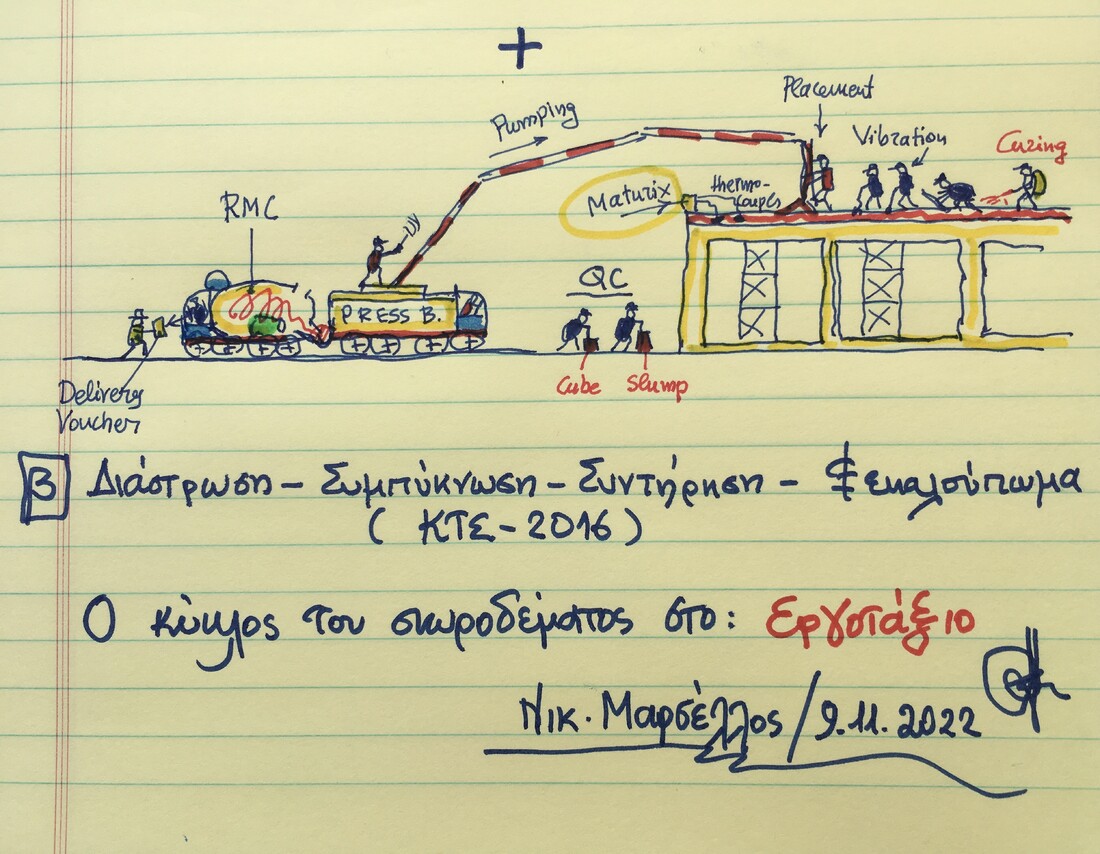 +
Placement
Pumping
Vibration
Curing
RMC
Maturix
thermo-
couples
QC
PRESS B.
Cube Slump
Delivery
Voucher
Β Διάστρωση - Συμπύκνωση - Συντήρηση - Ξεκαλούπωμα
( ΚΤΣ - 2016 )
Ο κύκλος του σκυροδέματος στο: Εργοτάξιο
Νικ. Μαρσέλλος / 9.11.2022